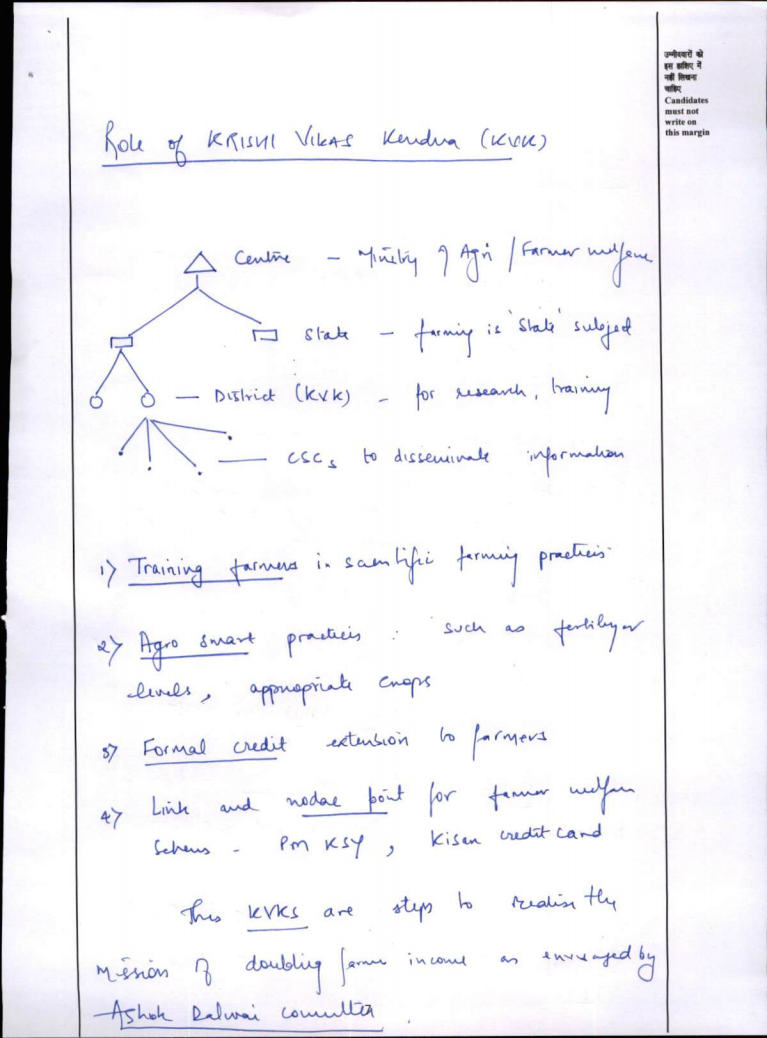 उम्मीदवारों को
इस हाशिए में
नहीं लिखना
चाहिए
Candidates
must not
write on
this margin
Role of KRISHI VIKAS Kendra (KVK)
Centre - Ministry of Agri / Farmer welfare
State - farming is 'State' subject
District (KVK) - for research, training
CSCs to disseminate information
1) Training farmers in scientific farming practices
2) Agro smart practices : such as fertilizer
levels, appropriate crops
3) Formal credit extension to farmers
4) Link and nodal point for farmer welfare
schemes - PM KSY, Kisan credit card
Thus KVKs are steps to realise the
mission of doubling farmer income as envisaged by
Ashok Dalwai committee